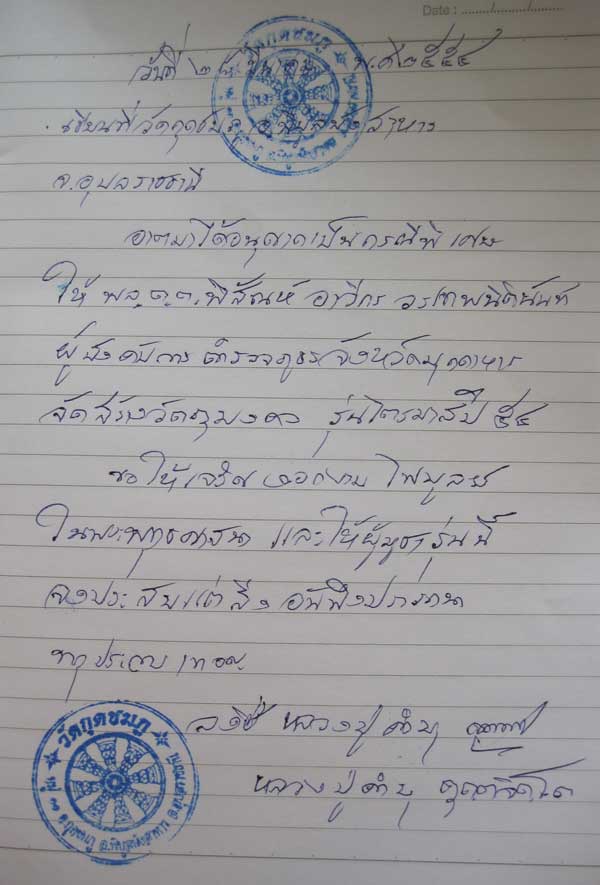 Date : ......../......../........
วันที่ ๒๘ มีนาคม พ.ศ. ๒๕๕๔
เขียนที่วัดกุดชมภู อ.พิบูลมังสาหาร
จ.อุบลราชธานี
อาตมาได้อนุญาตเป็นกรณีพิเศษ
ให้ พล.ต.ต. พิสัณห์ อาวีกร วรเทพนิตินันท์
ผู้บังคับการ ตำรวจภูธรจังหวัดมุกดาหาร
จัดสร้างวัตถุมงคล รุ่นไตรมาสปี ๕๔
ขอให้เจริญงอกงาม ไพบูลย์
ในพระพุทธศาสนา และให้ผู้บูชารุ่นนี้
จงประสบแต่สิ่งอันพึงปรารถนา
ทุกประการ เทอญ
ลงชื่อ หลวงปู่คำบุ
หลวงปู่คำบุ คุตฺตจิตฺโต
วัดกุดชมภู